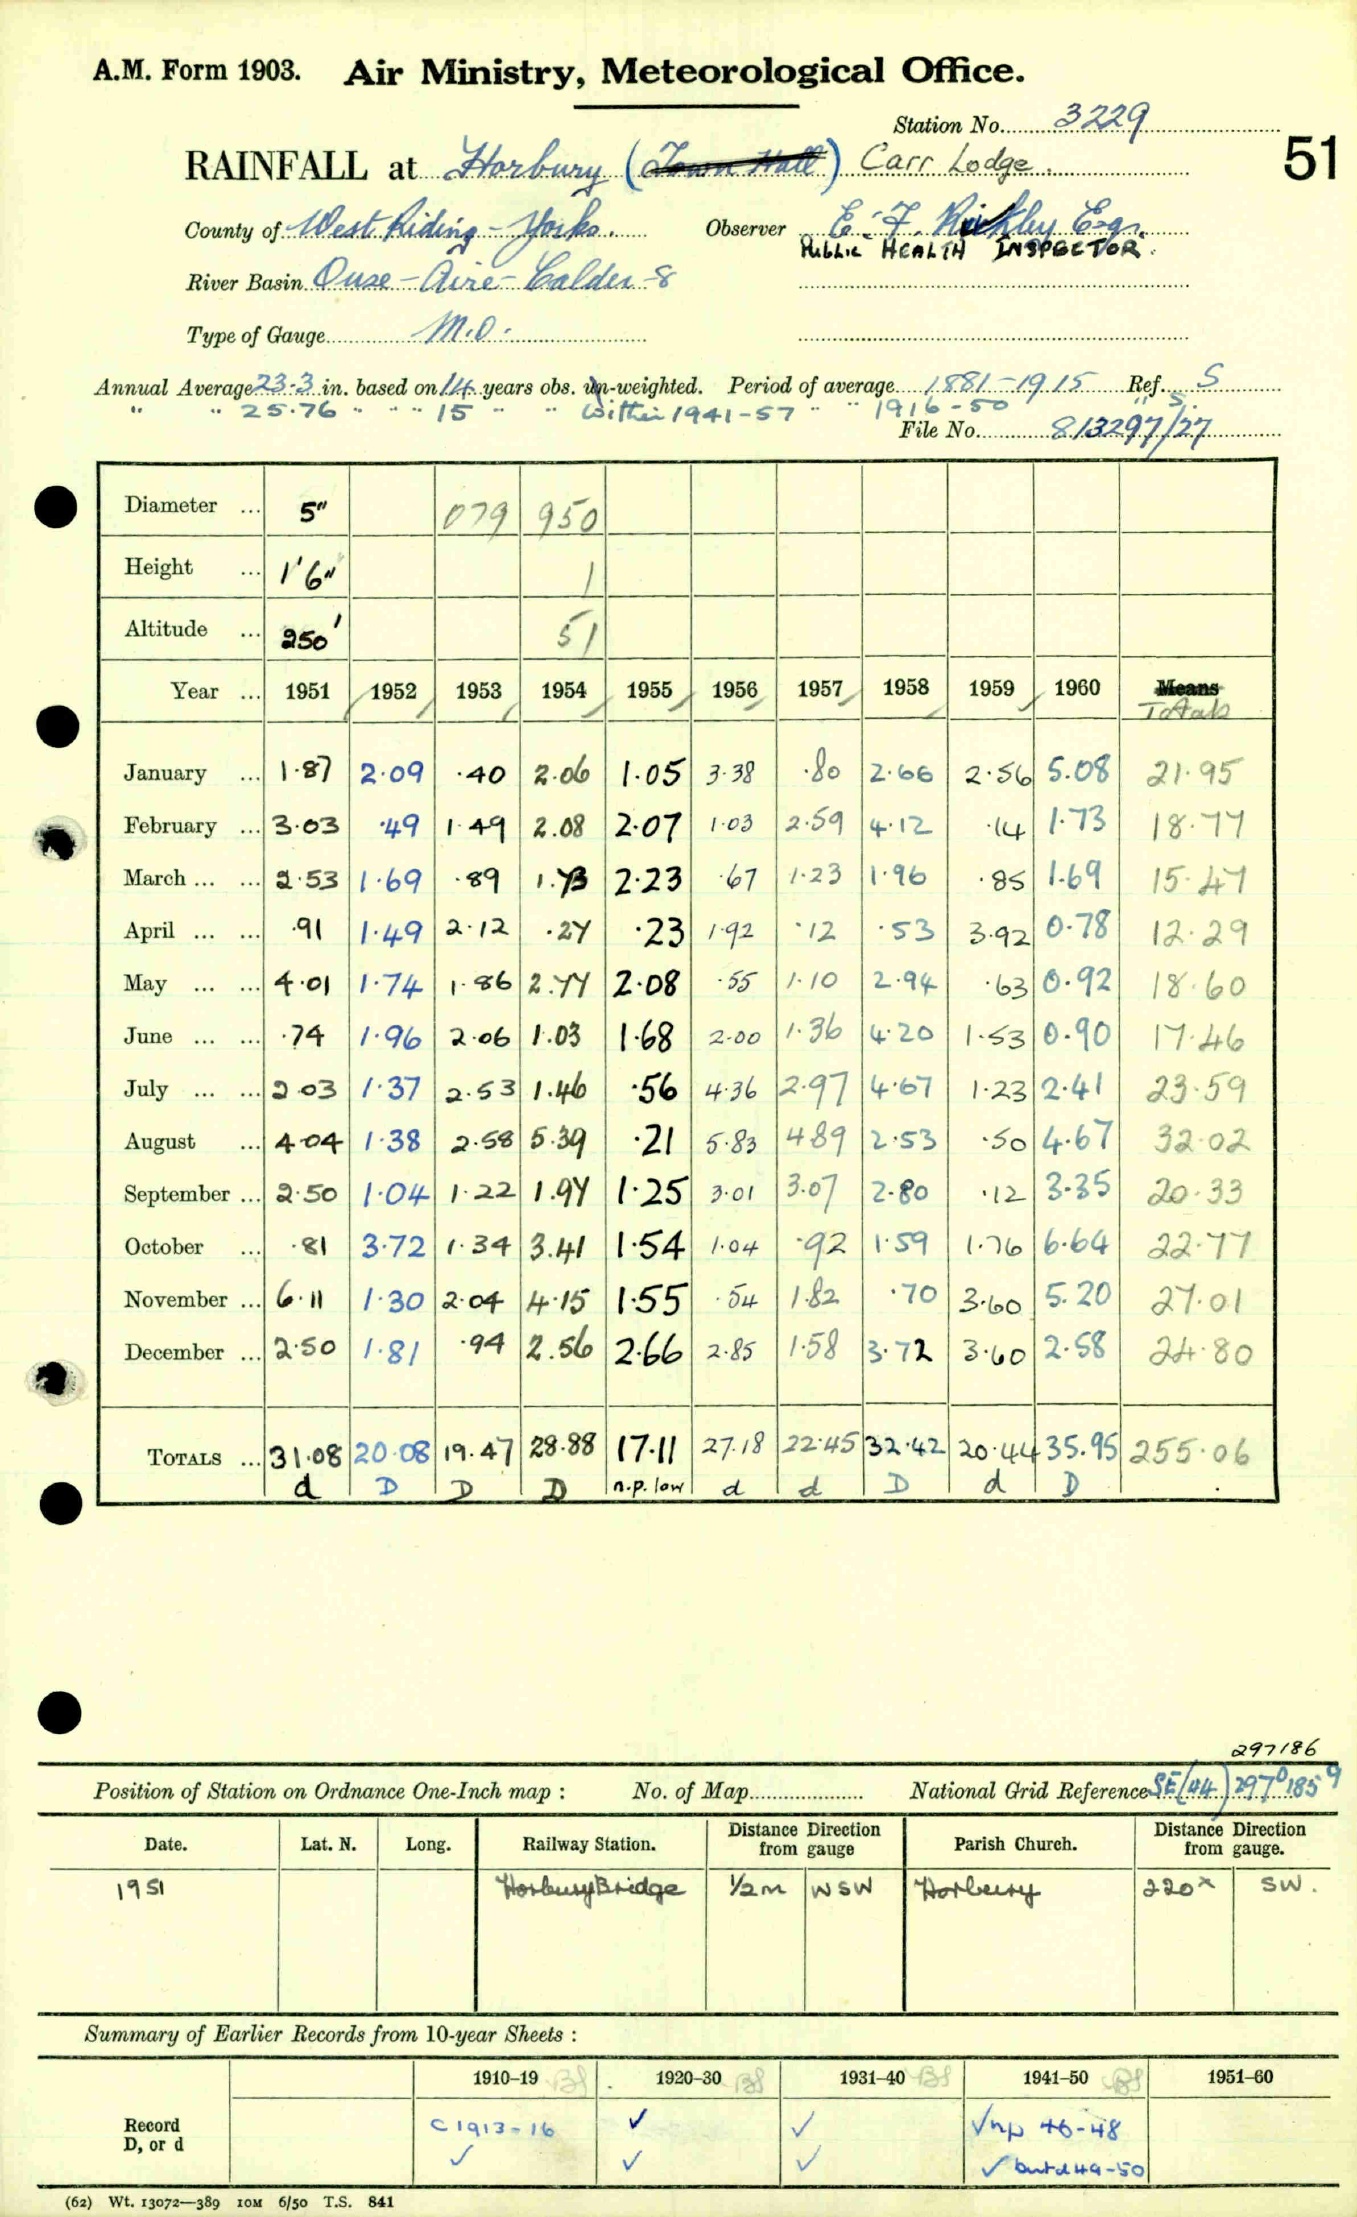 A.M. Form 1903. Air Ministry, Meteorological Office.
Station No. 3229
51
RAINFALL at Horbury (Town Hall) Carr Lodge.
County of West Riding - Yorks. Observer E. F. Esq.
PUBLIC HEALTH INSPECTOR.
River Basin Ouse - Aire - Calder - 8
Type of Gauge M.O.
Annual Average 23.3 in. based on 14 years obs. un-weighted. Period of average 1881-1915 Ref. S
" " 25.76 " " " 15 " " Within 1941-57 " " 1916-50 " S.
File No. 813297/27
Diameter ... 5" 079 950
Height ... 1'6" 1
Altitude ... 250' 51
Year ... 1951 1952 1953 1954 1955 1956 1957 1958 1959 1960 Means
Totals
January ... 1.87 2.09 .40 2.06 1.05 3.38 .80 2.66 2.56 5.08 21.95
February ... 3.03 .49 1.49 2.08 2.07 1.03 2.59 4.12 .14 1.73 18.77
March ... ... 2.53 1.69 .89 1.73 2.23 .67 1.23 1.96 .85 1.69 15.47
April ... ... .91 1.49 2.12 .27 .23 1.92 .12 .53 3.92 0.78 12.29
May ... ... 4.01 1.74 1.86 2.77 2.08 .55 1.10 2.94 .63 0.92 18.60
June ... ... .74 1.96 2.06 1.03 1.68 2.00 1.36 4.20 1.53 0.90 17.46
July ... ... 2.03 1.37 2.53 1.46 .56 4.36 2.97 4.67 1.23 2.41 23.59
August ... 4.04 1.38 2.58 5.39 .21 5.83 4.89 2.53 .50 4.67 32.02
September ... 2.50 1.04 1.22 1.97 1.25 3.01 3.07 2.80 .12 3.35 20.33
October ... .81 3.72 1.34 3.41 1.54 1.04 .92 1.59 1.76 6.64 22.77
November ... 6.11 1.30 2.04 4.15 1.55 .54 1.82 .70 3.60 5.20 27.01
December ... 2.50 1.81 .94 2.56 2.66 2.85 1.58 3.72 3.60 2.58 24.80
TOTALS ... 31.08 20.08 19.47 28.88 17.11 27.18 22.45 32.42 20.44 35.95 255.06
d D D D n.p. low d d D d D
297186
Position of Station on Ordnance One-Inch map : No. of Map National Grid Reference SE(44) 297⁰ 185⁹
Date. Lat. N. Long. Railway Station. Distance Direction from gauge Parish Church. Distance Direction from gauge.
1951 Horbury Bridge ½ m WSW Horbury 220x SW.
Summary of Earlier Records from 10-year Sheets :
1910-19 1920-30 1931-40 1941-50 1951-60
Record C 1913-16 ✓ ✓ ✓ np 46-48
D, or d ✓ ✓ ✓ ✓ but d 49-50
(62) Wt. 13072—389 10M 6/50 T.S. 841